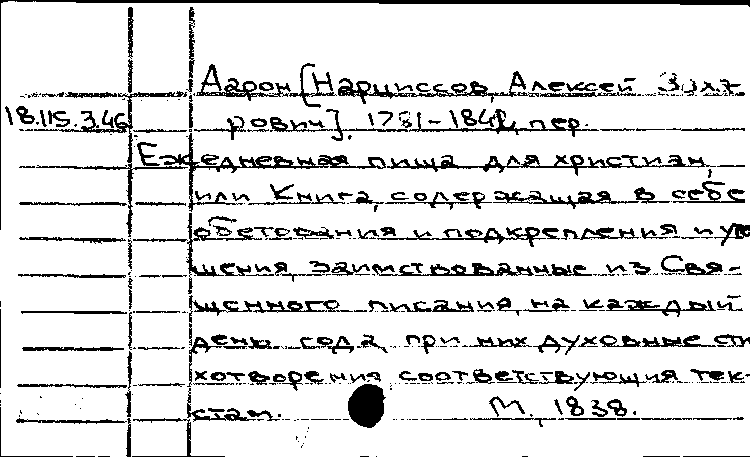 Аарон [Нарциссов, Алексей
18.115.3.46 рович]. 1781-1842, пер.
Ежедневная пища для христиан,
или Книга, содержащая в себе
обетования и подкрепления и
щения, заимствованные из Свя-
щенного писания, на каждый
день года, при них духовные сти
хотворения соответствующия тек-
стам. М., 1838.